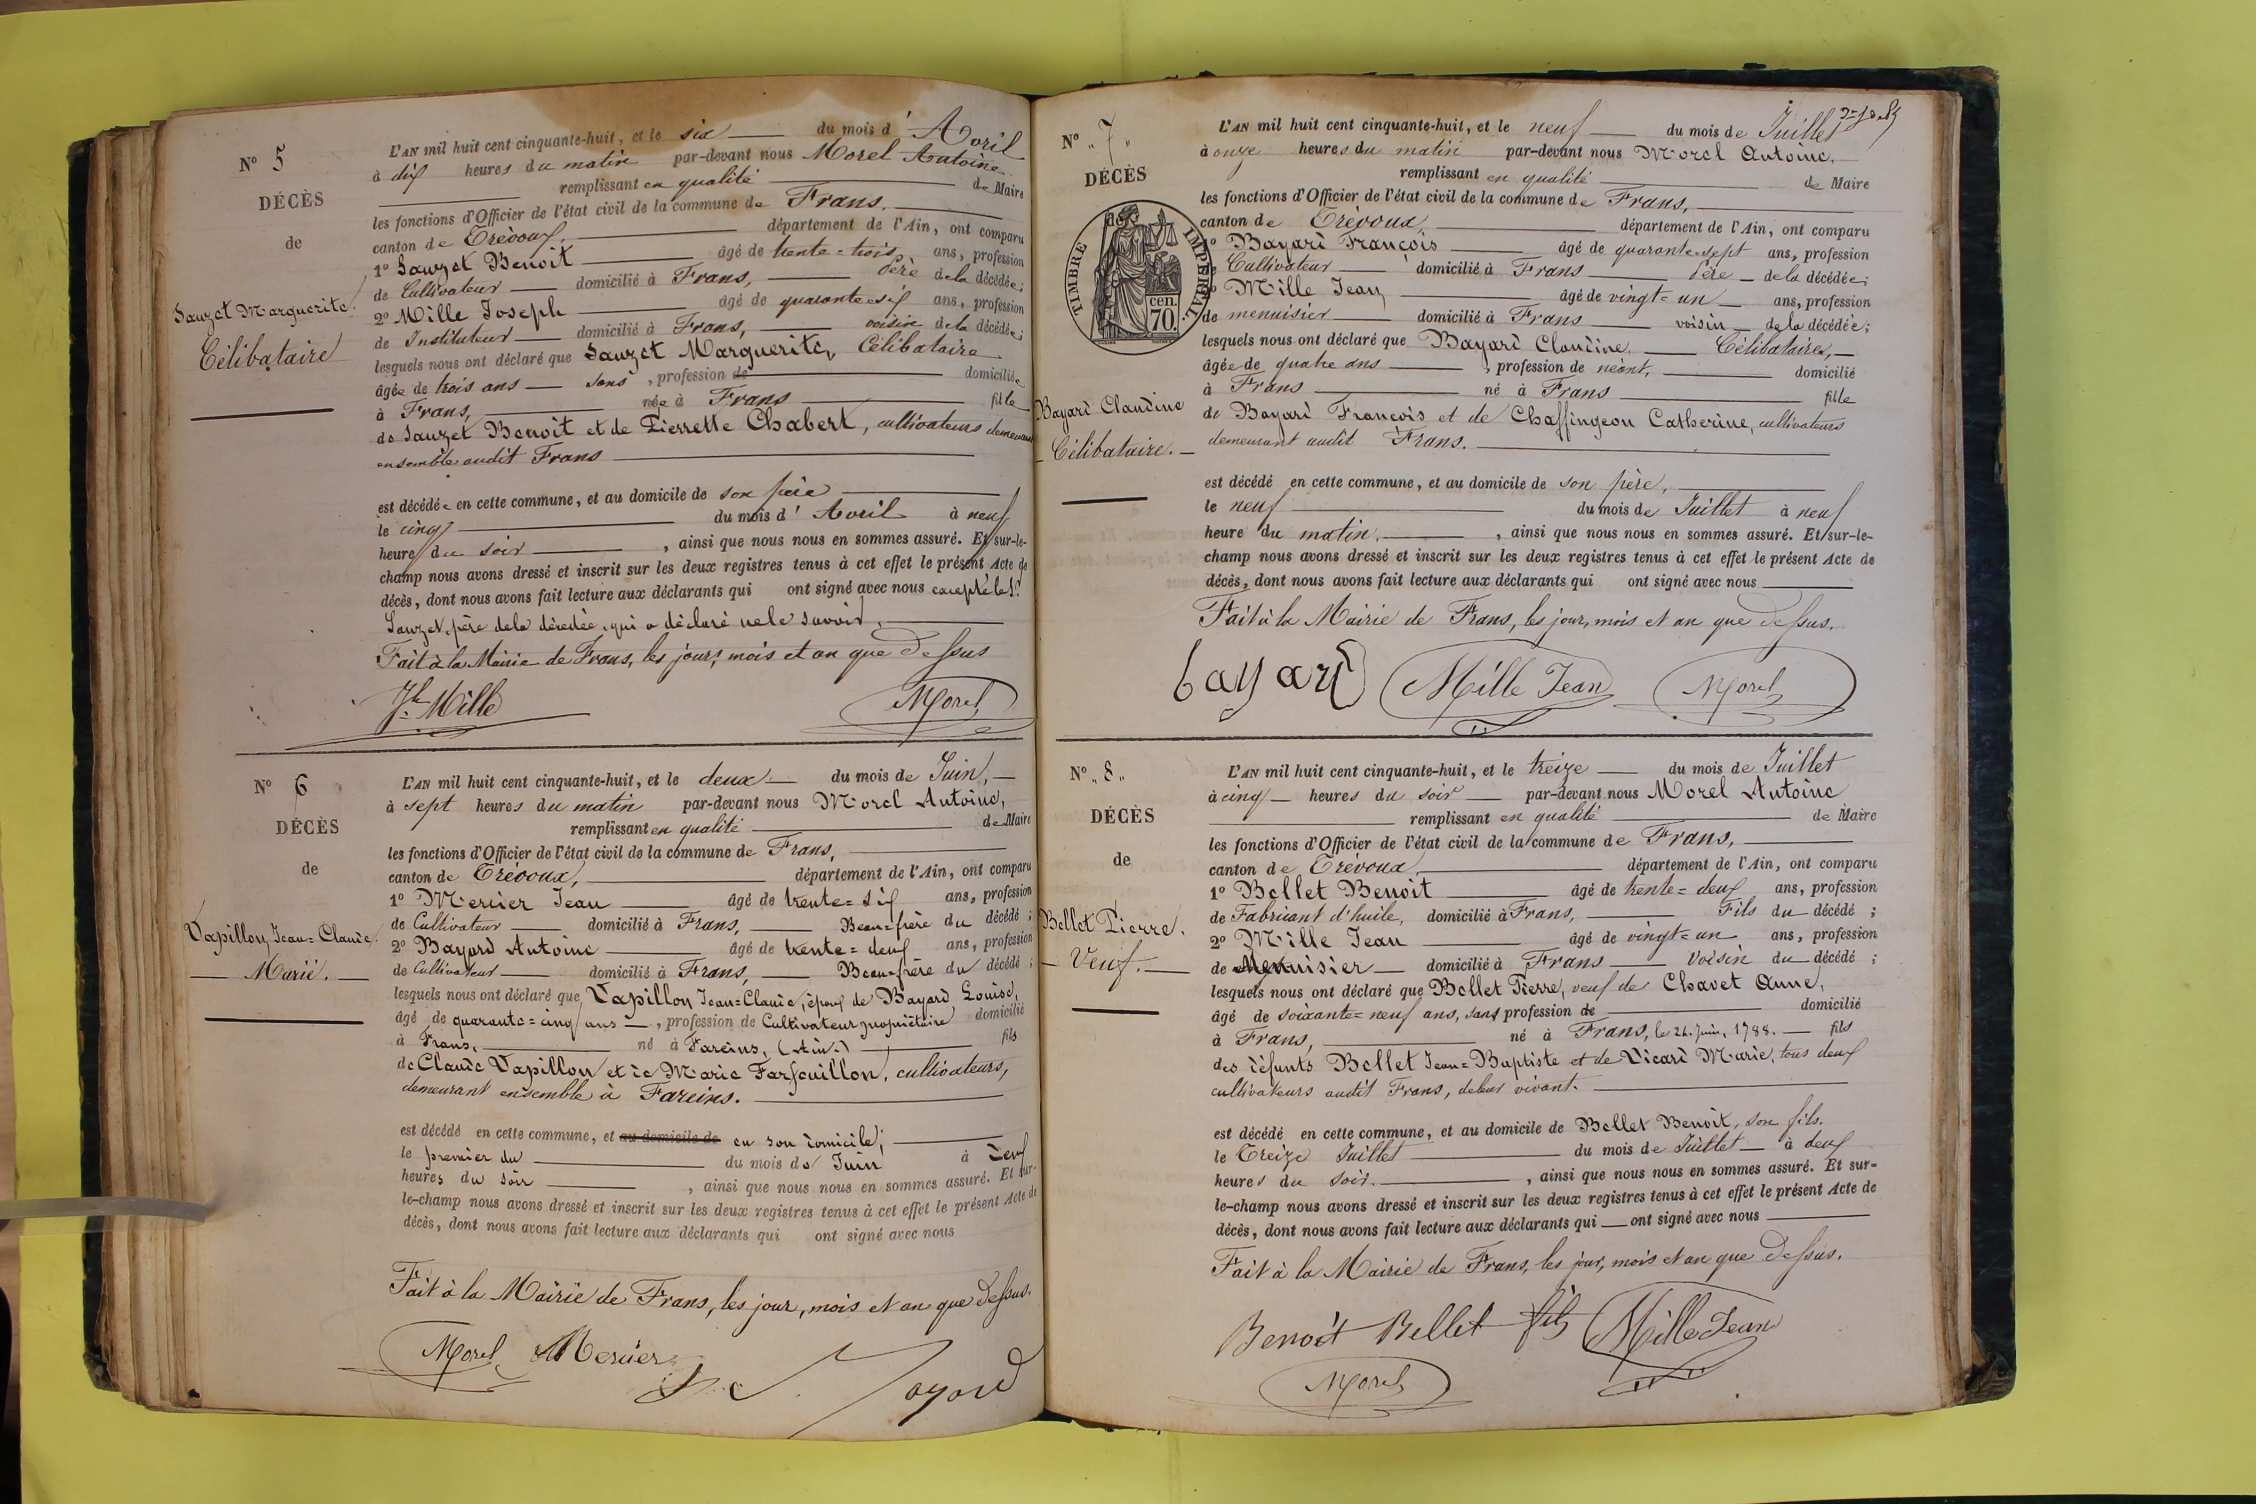 N° 5
DÉCÈS
de
Sauzet Marguerite
Célibataire
L'AN mil huit cent cinquante-huit, et le six du mois d'Avril
à dix heures du matin par-devant nous Morel Antoine
remplissant en qualité de Maire
les fonctions d'Officier de l'état civil de la commune de Frans.
canton de Trévoux, département de l'Ain, ont comparu
1° Sauzet Benoit âgé de trente=trois ans, profession
de Cultivateur domicilié à Frans, Père de la décédée;
2° Mille Joseph âgé de quarante=six ans, profession
de Instituteur domicilié à Frans, voisin de la décédée;
lesquels nous ont déclaré que Sauzet Marguerite, Célibataire
âgée de trois ans sans, profession de domiciliée
à Frans, née à Frans fille
de Sauzet Benoît et de Pierrette Chabert, cultivateurs demeurant
ensemble audit Frans
est décédée en cette commune, et au domicile de son père
le cinq du mois d'Avril à neuf
heure du soir, ainsi que nous nous en sommes assuré. Et sur-le-
champ nous avons dressé et inscrit sur les deux registres tenus à cet effet le présent Acte de
décès, dont nous avons fait lecture aux déclarants qui ont signé avec nous excepté le
Sauzet, père de la décédée, qui a déclaré ne le savoir.
Fait à la Mairie de Frans, les jour, mois et an que dessus
Jh Mille Morel
N° 6
DÉCÈS
de
Vapillon Jean=Claude.
Marié.
L'AN mil huit cent cinquante-huit, et le deux du mois de Juin,
à sept heures du matin par-devant nous Morel Antoine,
remplissant en qualité de Maire
les fonctions d'Officier de l'état civil de la commune de Frans,
canton de Trévoux, département de l'Ain, ont comparu
1° Mercier Jean âgé de trente=six ans, profession
de Cultivateur domicilié à Frans, Beau=frère du décédé;
2° Bayard Antoine âgé de trente=deux ans, profession
de Cultivateur domicilié à Frans, Beau=frère du décédé;
lesquels nous ont déclaré que Vapillon Jean=Claude, époux de Bayard Louise,
âgé de quarante=cinq ans, profession de Cultivateur propriétaire domicilié
à Frans, né à Fareins, (Ain.) fils
de Claude Vapillon et de Marie Farfouillon, cultivateurs,
demeurant ensemble à Fareins.
est décédé en cette commune, et au domicile de en son domicile;
le premier du du mois de Juin à deux
heures du soir, ainsi que nous nous en sommes assuré. Et sur-
le-champ nous avons dressé et inscrit sur les deux registres tenus à cet effet le présent Acte de
décès, dont nous avons fait lecture aux déclarants qui ont signé avec nous
Fait à la Mairie de Frans, les jour, mois et an que dessus.
Morel Mercier
Bayard
N° "7"
DÉCÈS
de
TIMBRE IMPERIAL
70. cen.
Bayard Claudine
Célibataire.
L'AN mil huit cent cinquante-huit, et le neuf du mois de Juillet
à onze heures du matin par-devant nous Morel Antoine.
remplissant en qualité de Maire
les fonctions d'Officier de l'état civil de la commune de Frans,
canton de Trévoux, département de l'Ain, ont comparu
1° Bayard François âgé de quarante=sept ans, profession
de Cultivateur domicilié à Frans Père de la décédée;
2° Mille Jean âgé de vingt=un ans, profession
de menuisier domicilié à Frans voisin de la décédée;
lesquels nous ont déclaré que Bayard Claudine. Célibataire,
âgée de quatre ans, profession de néant, domicilié
à Frans né à Frans fille
de Bayard François et de Chaffingeon Catherine, cultivateurs
demeurant audit Frans.
est décédé en cette commune, et au domicile de son père,
le neuf du mois de Juillet à neuf
heure du matin, ainsi que nous nous en sommes assuré. Et sur-le-
champ nous avons dressé et inscrit sur les deux registres tenus à cet effet le présent Acte de
décès, dont nous avons fait lecture aux déclarants qui ont signé avec nous
Fait à la Mairie de Frans, les jour, mois et an que dessus.
bayard Mille Jean Morel
N° "8"
DÉCÈS
de
Bellet Pierre.
Veuf.
L'AN mil huit cent cinquante-huit, et le treize du mois de Juillet
à cinq heures du soir par-devant nous Morel Antoine
remplissant en qualité de Maire
les fonctions d'Officier de l'état civil de la commune de Frans,
canton de Trévoux, département de l'Ain, ont comparu
1° Bellet Benoit âgé de trente=deux ans, profession
de Fabricant d'huile, domicilié à Frans, Fils du décédé;
2° Mille Jean âgé de vingt=un ans, profession
de Menuisier domicilié à Frans Voisin du décédé;
lesquels nous ont déclaré que Bellet Pierre, veuf de Chavet Anne,
âgé de soixante=neuf ans, sans profession de domicilié
à Frans, né à Frans, le 26. Juin, 1788. fils
des défunts Bellet Jean=Baptiste et de Vicard Marie, tous deux
cultivateurs audit Frans, de leur vivant.
est décédé en cette commune, et au domicile de Bellet Benoit, son fils.
le Treize Juillet du mois de Juillet à deux
heures du soir., ainsi que nous nous en sommes assuré. Et sur-
le-champ nous avons dressé et inscrit sur les deux registres tenus à cet effet le présent Acte de
décès, dont nous avons fait lecture aux déclarants qui ont signé avec nous
Fait à la Mairie de Frans, les jour, mois et an que dessus.
Benoit Bellet fils Mille Jean
Morel